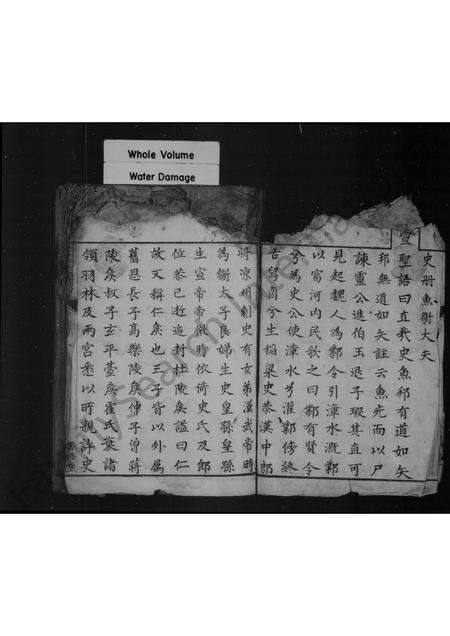 Whole Volume
Water Damage
史册魚衛大矣
宣聖語曰直哉史魚邦有道如矢
邦無道如矢註云魚死而以尸
諫靈公進伯玉退子瑕其直可
見起魏人為鄴令引漳水溉鄴
以富河内民歌之曰鄴有賢令
兮為史公使漳水兮灌鄴傍終
古舄鹵兮生稲梁史恭漢中郎
將凉州刺史有女弟漢武帝時
為衛太子良娣生史皇孫皇孫
生宣帝帝微時依倚史氏及即
位恭已逝追封杜陵矦謚曰仁
故又稱仁矣也三子皆以外属
舊恩長子高樂陵矦仲子曽蒋
陵矦叔子玄平臺矦霍氏衰諸
領羽林及両宮悉以所親許史